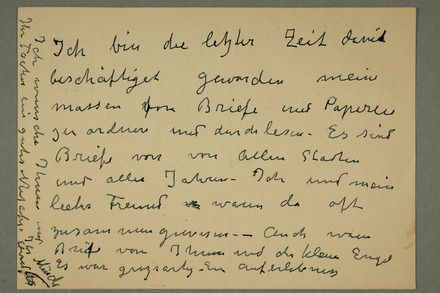 Ich bin die letzter Zeit damit
beschäftiget geworden mein
massen von Briefe und Papieren
zu ordnen und durchlesen - Es sind
Briefe von von allen Staaten
und allen Jahren - Ich und mein
Freund waren da oft
zusammen gewesen - Auch waren
Briefe von Ihnen und die kleine Engel
Es war grossartig - Ein
Ich wünsche Ihnen und
Ihr Tochter ein gutes